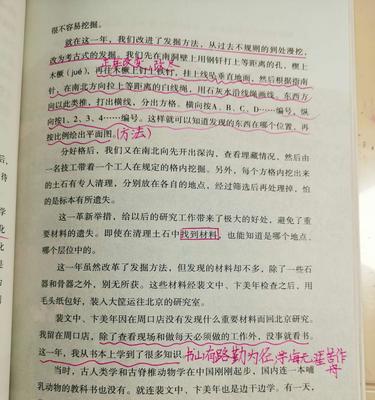 很不容易挖掘。
就在这一年，我们改进了发掘方法，从过去不规则的到处漫挖，
改为考古式的发掘。我们先在南洞壁上用钢钎打上等距离的孔，楔上
木橛（jué），再往木橛上钉小铁钉，挂上线坠垂直地面，然后根据指南
针，在南北方向拉上等距离的白线绳，用石灰水沿线绳画线。东西方
向以此类推，打出横线，分出方格。横向按A、B、C、D……编号，纵
向按1、2、3、4……编号。这样就可以知道发现的东西在哪个位置，再
按比例绘出平面图。(方法)
分好格后，我们又在南北向先开出深沟，查看埋藏情况，然后由
一名技工带着一个工人在规定的格内挖掘。另外，每个方格内挖出来
的土石有专人清理，分别放在各自的地点，经过筛选后再处理掉，怕
的是标本有所遗失。
这一革新举措，给以后的研究工作带来了极大的好处，避免了重
要材料的遗失。即使在清理土石中找到材料，也能知道是哪个地点、
哪个层位中的。
这一年虽然改革了发掘方法，但发现的材料却不多，除了一些石
器和骨器之外，别无所获。这些材料经裴文中、卞美年检查之后，用
毛头纸包好，装入大筐运往北京的研究室。
裴文中、卞美年因在周口店没有发现什么重要材料而回北京研究。
我留在周口店，除了查看现场和做每天必须做的工作外，没事就看书。
这一年，我从书本上学到了很多知识。书山有路勤为径,学海无涯苦作
舟
当时，古人类学和古脊椎动物学在中国刚刚起步，国内连一本哺
乳动物的教科书也没有。就连裴文中、卞美年也是边干边学。有一天，